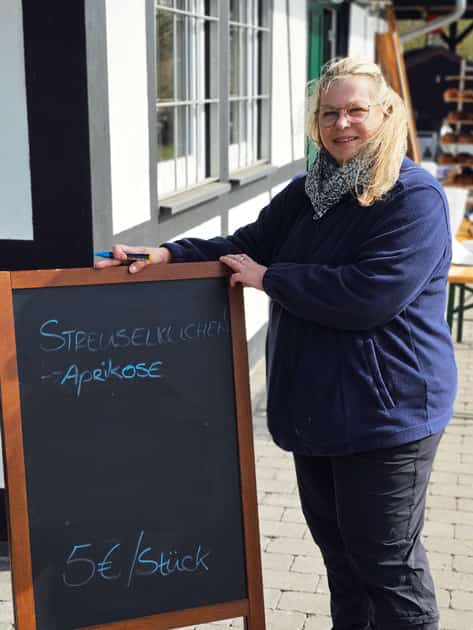 STREUSELKUCHEN
-- APRIKOSE
5€/Stück